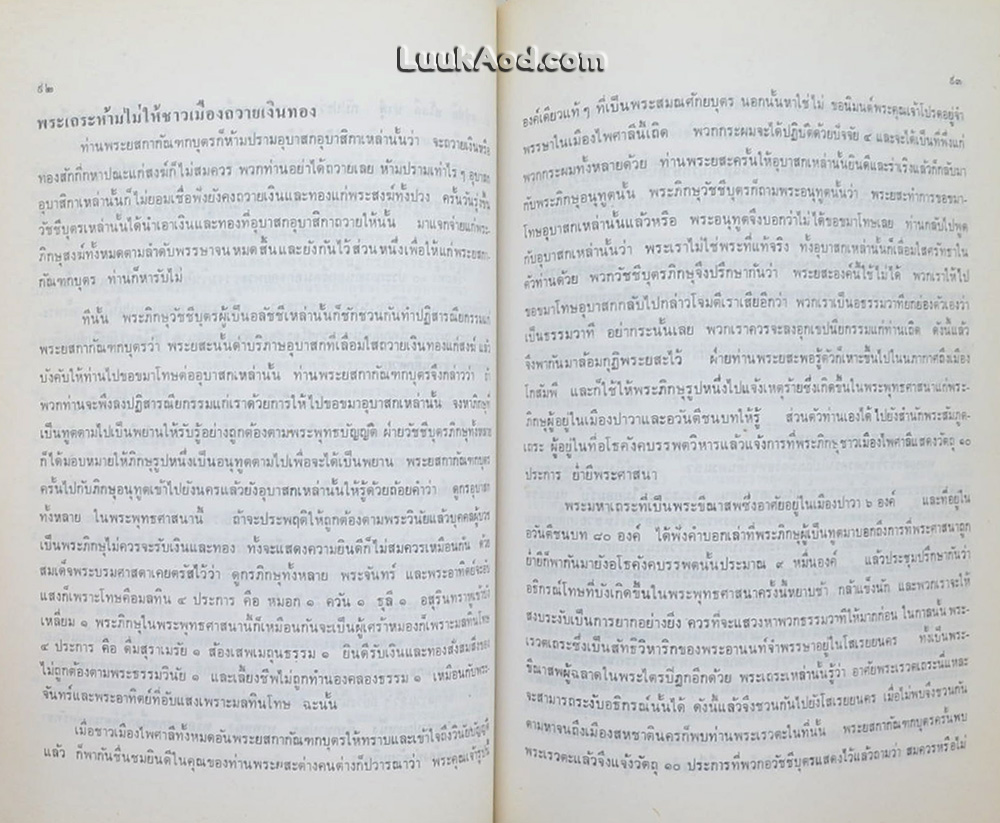 LuukAod.com
๙๒
พระเถระห้ามไม่ให้ชาวเมืองถวายเงินทอง
ท่านพระยสกากัณฑกบุตรก็ห้ามปรามอุบาสกอุบาสิกาเหล่านั้นว่า จะถวายเงินหรือ
ทองสักกึ่งกหาปณะแก่สงฆ์ก็ไม่สมควร พวกท่านอย่าได้ถวายเลย ห้ามปรามเท่าไร ๆ อุบาสก
อุบาสิกาเหล่านั้นก็ไม่ยอมเชื่อฟังยังคงถวายเงินและทองแก่พระสงฆ์ทั้งปวง ครั้นวันรุ่งขึ้น
วัชชีบุตรเหล่านั้นได้นำเอาเงินและทองที่อุบาสกอุบาสิกาถวายให้นั้น มาแจกจ่ายแก่พระ-
ภิกษุสงฆ์ทั้งหมดตามลำดับพรรษาจนหมดสิ้นและยังกันไว้ส่วนหนึ่งเพื่อให้แก่พระยสกา-
กัณฑกบุตร ท่านก็หารับไม่
ทีนั้น พระภิกษุวัชชีบุตรผู้เป็นอลัชชีเหล่านั้นก็ชักชวนกันทำปฏิสารณียกรรมแก่
พระยสกากัณฑกบุตรว่า พระยสะนั้นด่าบริภาษอุบาสกที่เลื่อมใสถวายเงินทองแก่สงฆ์ แล้ว
บังคับให้ท่านไปขอขมาโทษต่ออุบาสกเหล่านั้น ท่านพระยสกากัณฑกบุตรจึงกล่าวว่า ถ้า
พวกท่านจะพึงลงปฏิสารณียกรรมแก่เราด้วยการให้ไปขอขมาอุบาสกเหล่านั้น จงหาภิกษุที่
เป็นทูตตามไปเป็นพยานให้รับรู้อย่างถูกต้องตามพระพุทธบัญญัติ ฝ่ายวัชชีบุตรภิกษุทั้งหลาย
ก็ได้มอบหมายให้ภิกษุรูปหนึ่งเป็นอนุทูตตามไปเพื่อจะได้เป็นพยาน พระยสกากัณฑกบุตร
ครั้นไปกับภิกษุอนุทูตเข้าไปยังนครแล้วยังอุบาสกเหล่านั้นให้รู้ด้วยถ้อยคำว่า ดูกรอุบาสก
ทั้งหลาย ในพระพุทธศาสนานี้ ถ้าจะประพฤติให้ถูกต้องตามพระวินัยแล้วบุคคลผู้บวช
เป็นพระภิกษุไม่ควรจะรับเงินและทอง ทั้งจะแสดงความยินดีก็ไม่สมควรเหมือนกัน ด้วย
สมเด็จพระบรมศาสดาเคยตรัสไว้ว่า ดูกรภิกษุทั้งหลาย พระจันทร์ และพระอาทิตย์จะอับ
แสงก็เพราะโทษคือมลทิน ๔ ประการ คือ หมอก ๑ ควัน ๑ ธุลี ๑ อสุรินทราหูเข้าบัง
เหลี่ยม ๑ พระภิกษุในพระพุทธศาสนานี้ก็เหมือนกันจะเป็นผู้เศร้าหมองก็เพราะมลทินโทษ
๔ ประการ คือ ดื่มสุราเมรัย ๑ ส้องเสพเมถุนธรรม ๑ ยินดีรับเงินและทองสั่งสมสิ่งของ
ไม่ถูกต้องตามพระธรรมวินัย ๑ และเลี้ยงชีพไม่ถูกทำนองคลองธรรม ๑ เหมือนกับพระ-
จันทร์และพระอาทิตย์ที่อับแสงเพราะมลทินโทษ ฉะนั้น
เมื่อชาวเมืองไพศาลีทั้งหมดอันพระยสกากัณฑกบุตรให้ทราบและเข้าใจถึงวินัยบัญญัติ
แล้ว ก็พากันชื่นชมยินดีในคุณของท่านพระยสะต่างคนต่างก็ปวารณาว่า พระคุณเจ้ารูปนี้
๙๓
องค์เดียวแท้ ๆ ที่เป็นพระสมณศักยบุตร นอกนั้นหาใช่ไม่ ขอนิมนต์พระคุณเจ้าโปรดอยู่จำ
พรรษาในเมืองไพศาลีนี้เถิด พวกกระผมจะได้ปฏิบัติด้วยปัจจัย ๔ และจะได้เป็นที่พึ่งแก่
พวกกระผมทั้งหลายด้วย ท่านพระยสะครั้นให้อุบาสกเหล่านั้นยินดีและร่าเริงแล้วก็กลับมา
กับพระภิกษุอนุทูตนั้น พระภิกษุวัชชีบุตรก็ถามพระอนุทูตนั้นว่า พระยสะทำการขอขมา-
โทษอุบาสกเหล่านั้นแล้วหรือ พระอนุทูตจึงบอกว่าไม่ได้ขอขมาโทษเลย ท่านกลับไปพูด
กับอุบาสกเหล่านั้นว่า พระเราไม่ใช่พระที่แท้จริง ทั้งอุบาสกเหล่านั้นก็เลื่อมใสศรัทธาใน
ตัวท่านด้วย พวกวัชชีบุตรภิกษุจึงปรึกษากันว่า พระยสะองค์นี้ใช้ไม่ได้ พวกเราให้ไป
ขอขมาโทษอุบาสกกลับไปกล่าวโจมตีเราเสียอีกว่า พวกเราเป็นอธรรมวาทียกย่องตัวเองว่า
เป็นธรรมวาที อย่ากระนั้นเลย พวกเราควรจะลงอุกเขปนียกรรมแก่ท่านเถิด ดังนี้แล้ว
จึงพากันมาล้อมกุฏิพระยสะไว้ ฝ่ายท่านพระยสะพอรู้ตัวก็เหาะขึ้นไปในนภากาศถึงเมือง
โกสัมพี และก็ใช้ให้พระภิกษุรูปหนึ่งไปแจ้งเหตุร้ายซึ่งเกิดขึ้นในพระพุทธศาสนาแก่พระ-
ภิกษุผู้อยู่ในเมืองปาวาและอวันตีชนบทให้รู้ ส่วนตัวท่านเองได้ไปยังสำนักพระสัมภูต-
เถระ ผู้อยู่ในที่อโธคังคบรรพตวิหารแล้วแจ้งการที่พระภิกษุชาวเมืองไพศาลีแสดงวัตถุ ๑๐
ประการ ย่ำยีพระศาสนา
พระมหาเถระที่เป็นพระขีณาสพซึ่งอาศัยอยู่ในเมืองปาวา ๖ องค์ และที่อยู่ใน
อวันตีชนบท ๘๐ องค์ ได้ฟังคำบอกเล่าที่พระภิกษุผู้เป็นทูตมาบอกถึงการที่พระศาสนาถูก
ย่ำยีก็พากันมายังอโธคังคบรรพตนั้นประมาณ ๙ หมื่นองค์ แล้วประชุมปรึกษากันว่า
อธิกรณ์โทษที่บังเกิดขึ้นในพระพุทธศาสนาครั้งนี้หยาบช้า กล้าแข็งนัก และพวกเราจะให้
สงบระงับเป็นการยากอย่างยิ่ง ควรที่จะแสวงหาพวกธรรมวาทีให้มากก่อน ในกาลนั้น พระ-
เรวตเถระซึ่งเป็นสัทธิวิหาริกของพระอานนท์จำพรรษาอยู่ในโสเรยยนคร ทั้งเป็นพระ-
ขีณาสพผู้ฉลาดในพระไตรปิฎกอีกด้วย พระเถระเหล่านั้นรู้ว่า อาศัยพระเรวตเถระนี่แหละ
จะสามารถระงับอธิกรณ์นั้นได้ ดังนี้แล้วจึงชวนกันไปยังโสเรยยนคร เมื่อไม่พบจึงชวนกัน
ตามหาจนถึงเมืองสหชาตินครก็พบท่านพระเรวตะในที่นั้น พระยสกากัณฑกบุตรครั้นพบ
พระเรวตะแล้วจึงแจ้งวัตถุ ๑๐ ประการที่พวกอวัชชีบุตรแสดงไว้แล้วถามว่า สมควรหรือไม่